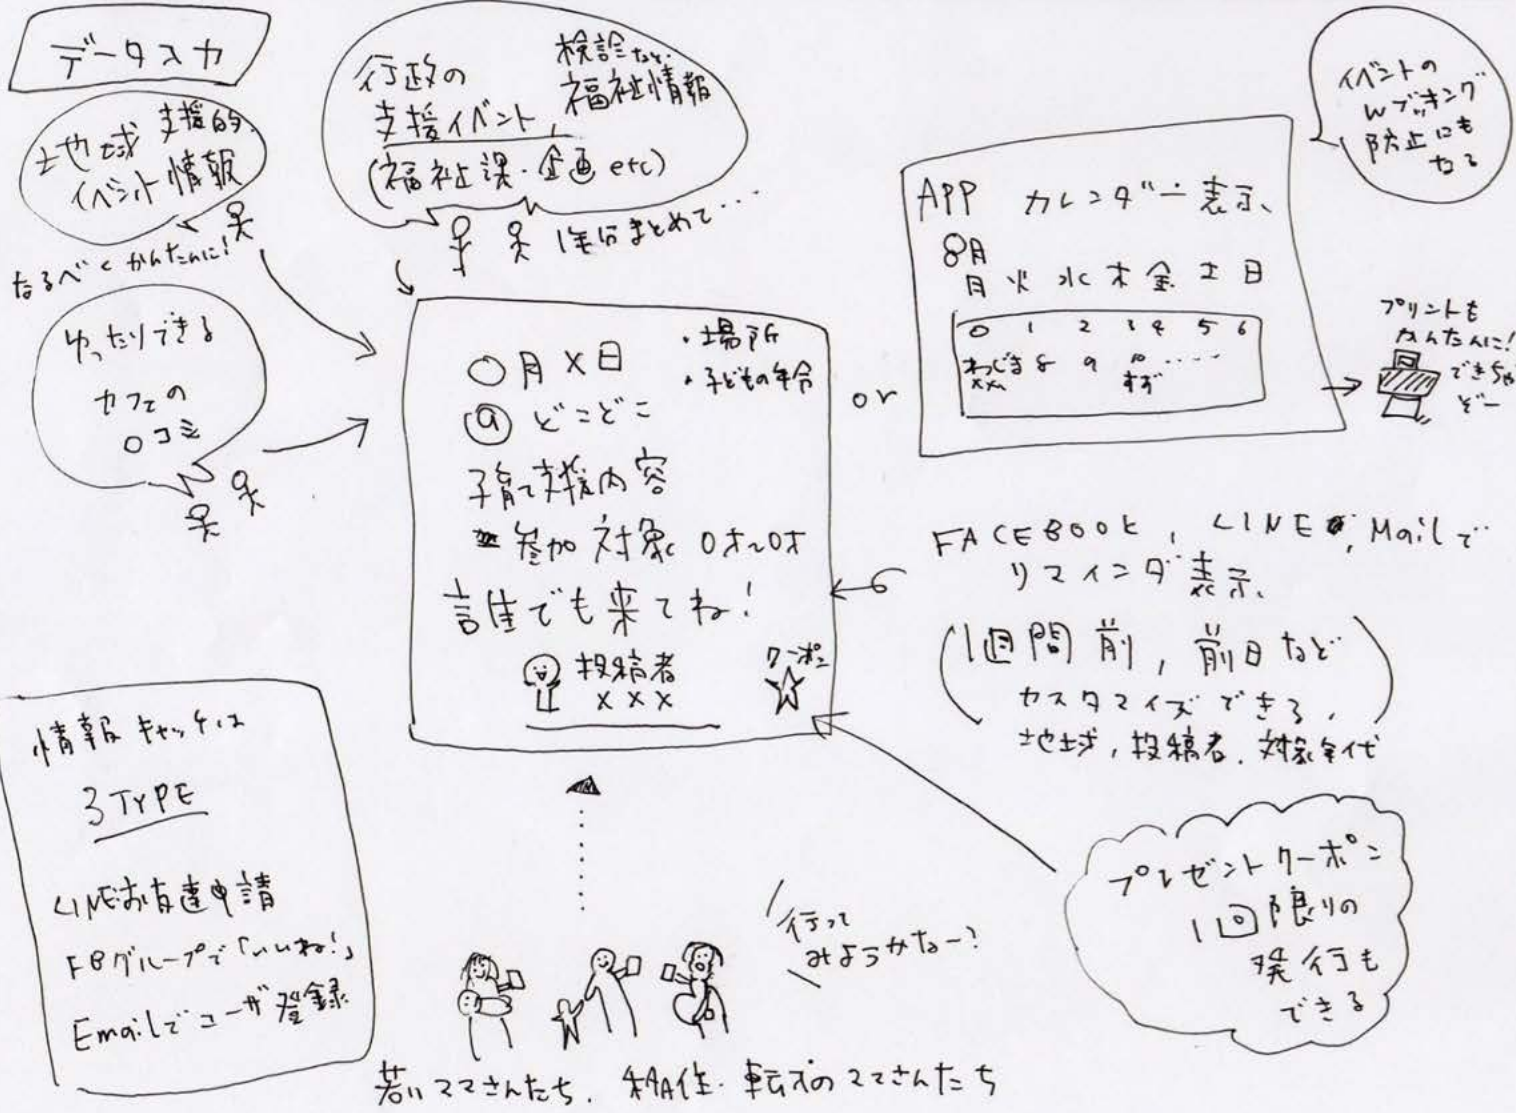 データ入力
地域 支援的
イベント情報
なるべくかんたんに!
ゆったりできる
カフェの
口コミ
行政の
支援イベント,
検診など
福祉情報
(福祉課・企画 etc)
1年分まとめて…
〇月×日
・場所
・子どもの年令
@ どこどこ
子育て支援内容
参加対象 0才~0才
誰でも来てね!
投稿者
×××
クーポン
or
APP カレンダー表示
8月
月火水木金土日
0 1 2 3 4 5 6
わじま 8 9 10 ……
××
すず
イベントの
Wブッキング
防止にも
なる
プリントも
かんたんに!
できちゃ
ぞー
FACEBOOK, LINE, Mailで
リマインダ表示
(1週間前, 前日など
カスタマイズできる,
地域, 投稿者, 対象年代)
プレゼントクーポン
1回限りの
発行も
できる
情報キャッチは
3TYPE
LINEお友達申請
FBグループで「いいね!」
Emailでユーザ登録
行って
みようかなー?
若いママさんたち. 移住・転入のママさんたち